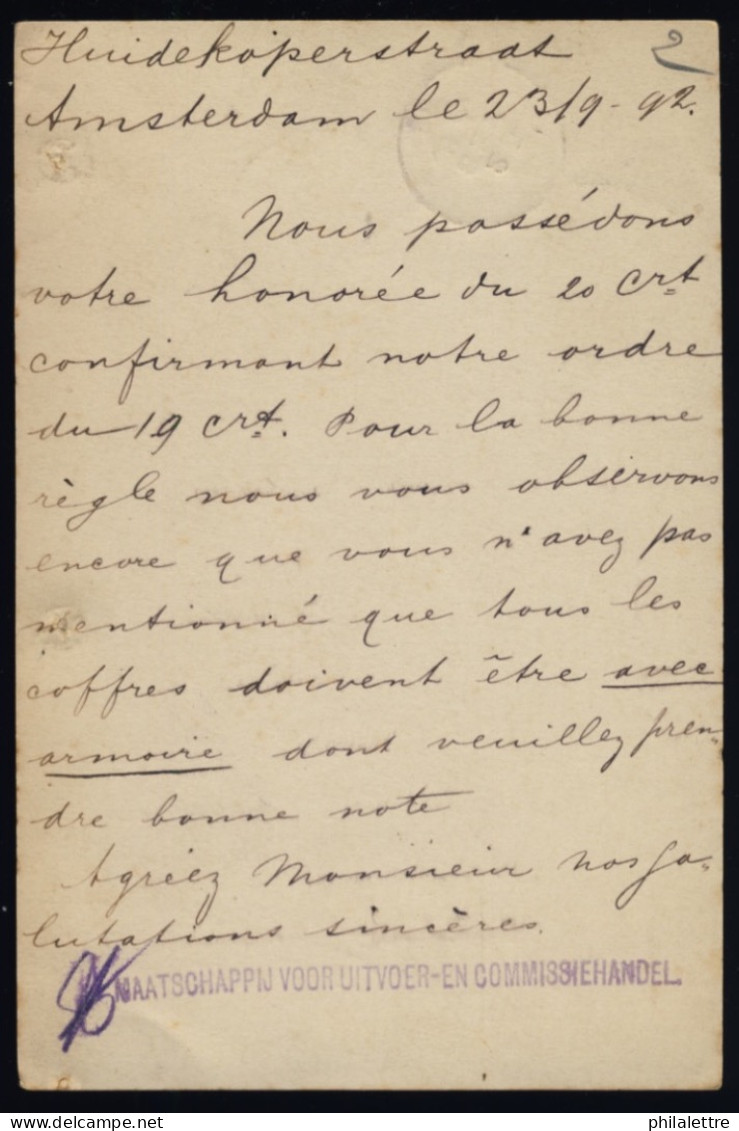 Huidekoperstraat 2
Amsterdam le 23/9-92.
Nous possédons
votre honorée du 20 Crt
confirmant notre ordre
du 19 crt. Pour la bonne
règle nous vous observons
encore que vous n'avez pas
mentionné que tous les
coffres doivent être avec
armoire dont veuillez pren-
dre bonne note
Agréez Monsieur nos sa-
lutations sincères.
MAATSCHAPPIJ VOOR UITVOER-EN COMMISSIEHANDEL.
philalettre